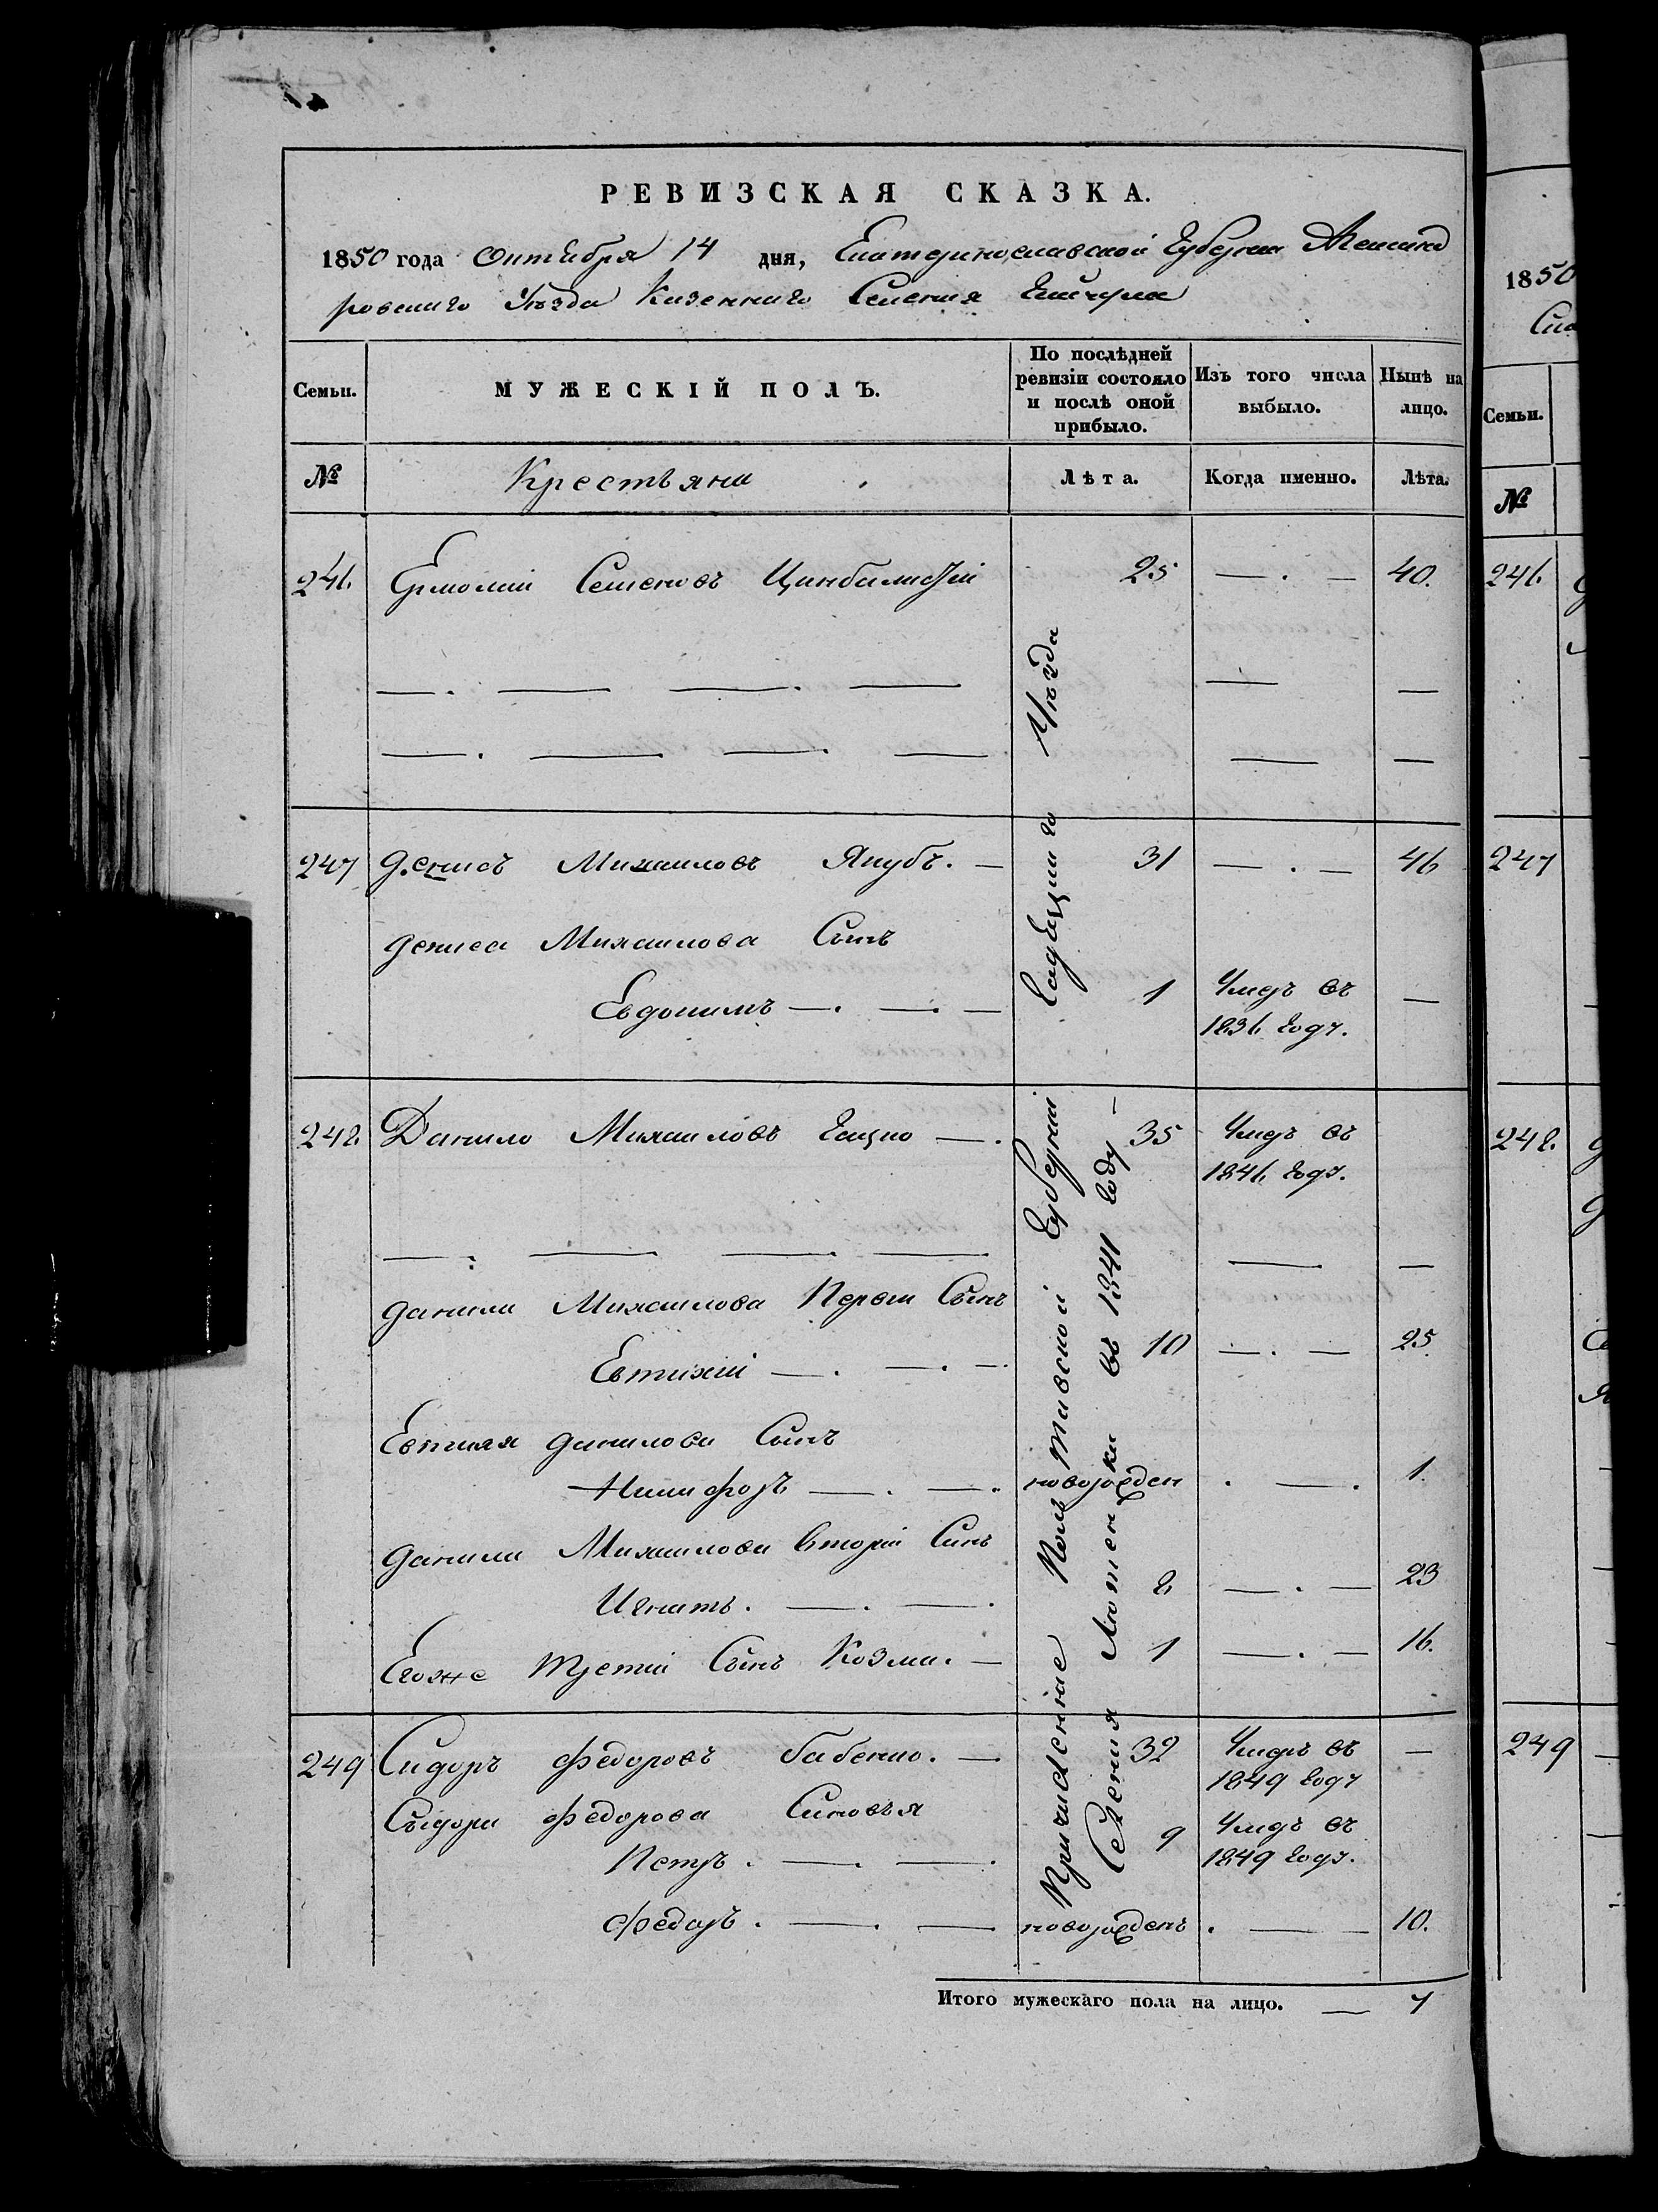 РЕВИЗСКАЯ СКАЗКА.
1850 года Октября 14 дня, Екатеринославской Губернии Александ
ровскаго Уѣзда Казеннаго Селения
Семьи.
МУЖЕСКІЙ ПОЛЪ.
По послѣдней ревизіи состояло и послѣ оной прибыло.
Изъ того числа выбыло.
Нынѣ на лицо.
№
Крестьяни
Лѣта.
Когда именно.
Лѣта.
246. Ермолай Семеновъ Цинбалистій 25 40.
247 Денисъ Михаиловъ Якубъ. 31 46
Дениса Михаилова Сынъ
Евдокимъ 1 Умеръ въ
1836 году.
248. Данило Михаиловъ Гацко 35 Умеръ въ
1846 году.
Данила Михаилова Первый Сынъ
Евтихій 10 25
Евтихія Данилова Сынъ
Никифоръ новорожден 1.
Данила Михаилова Вторій Синъ
Игнатъ. 8 23
Егоже Третій Сынъ Козма. 1 16.
249 Сидоръ Федоровъ Бабенко. 32 Умеръ въ
1849 году
Сыдора Федорова Синовья
Петръ. 9 Умеръ въ
1849 году.
Федоръ. новорожденъ 10.
Причисленние Полтавской Губерніи Гадяцкаго Уѣзда
Селения Лютенки въ 1841 году
Итого мужескаго пола на лицо. 7
1850
Семьи.
№
246.
247
248.
249